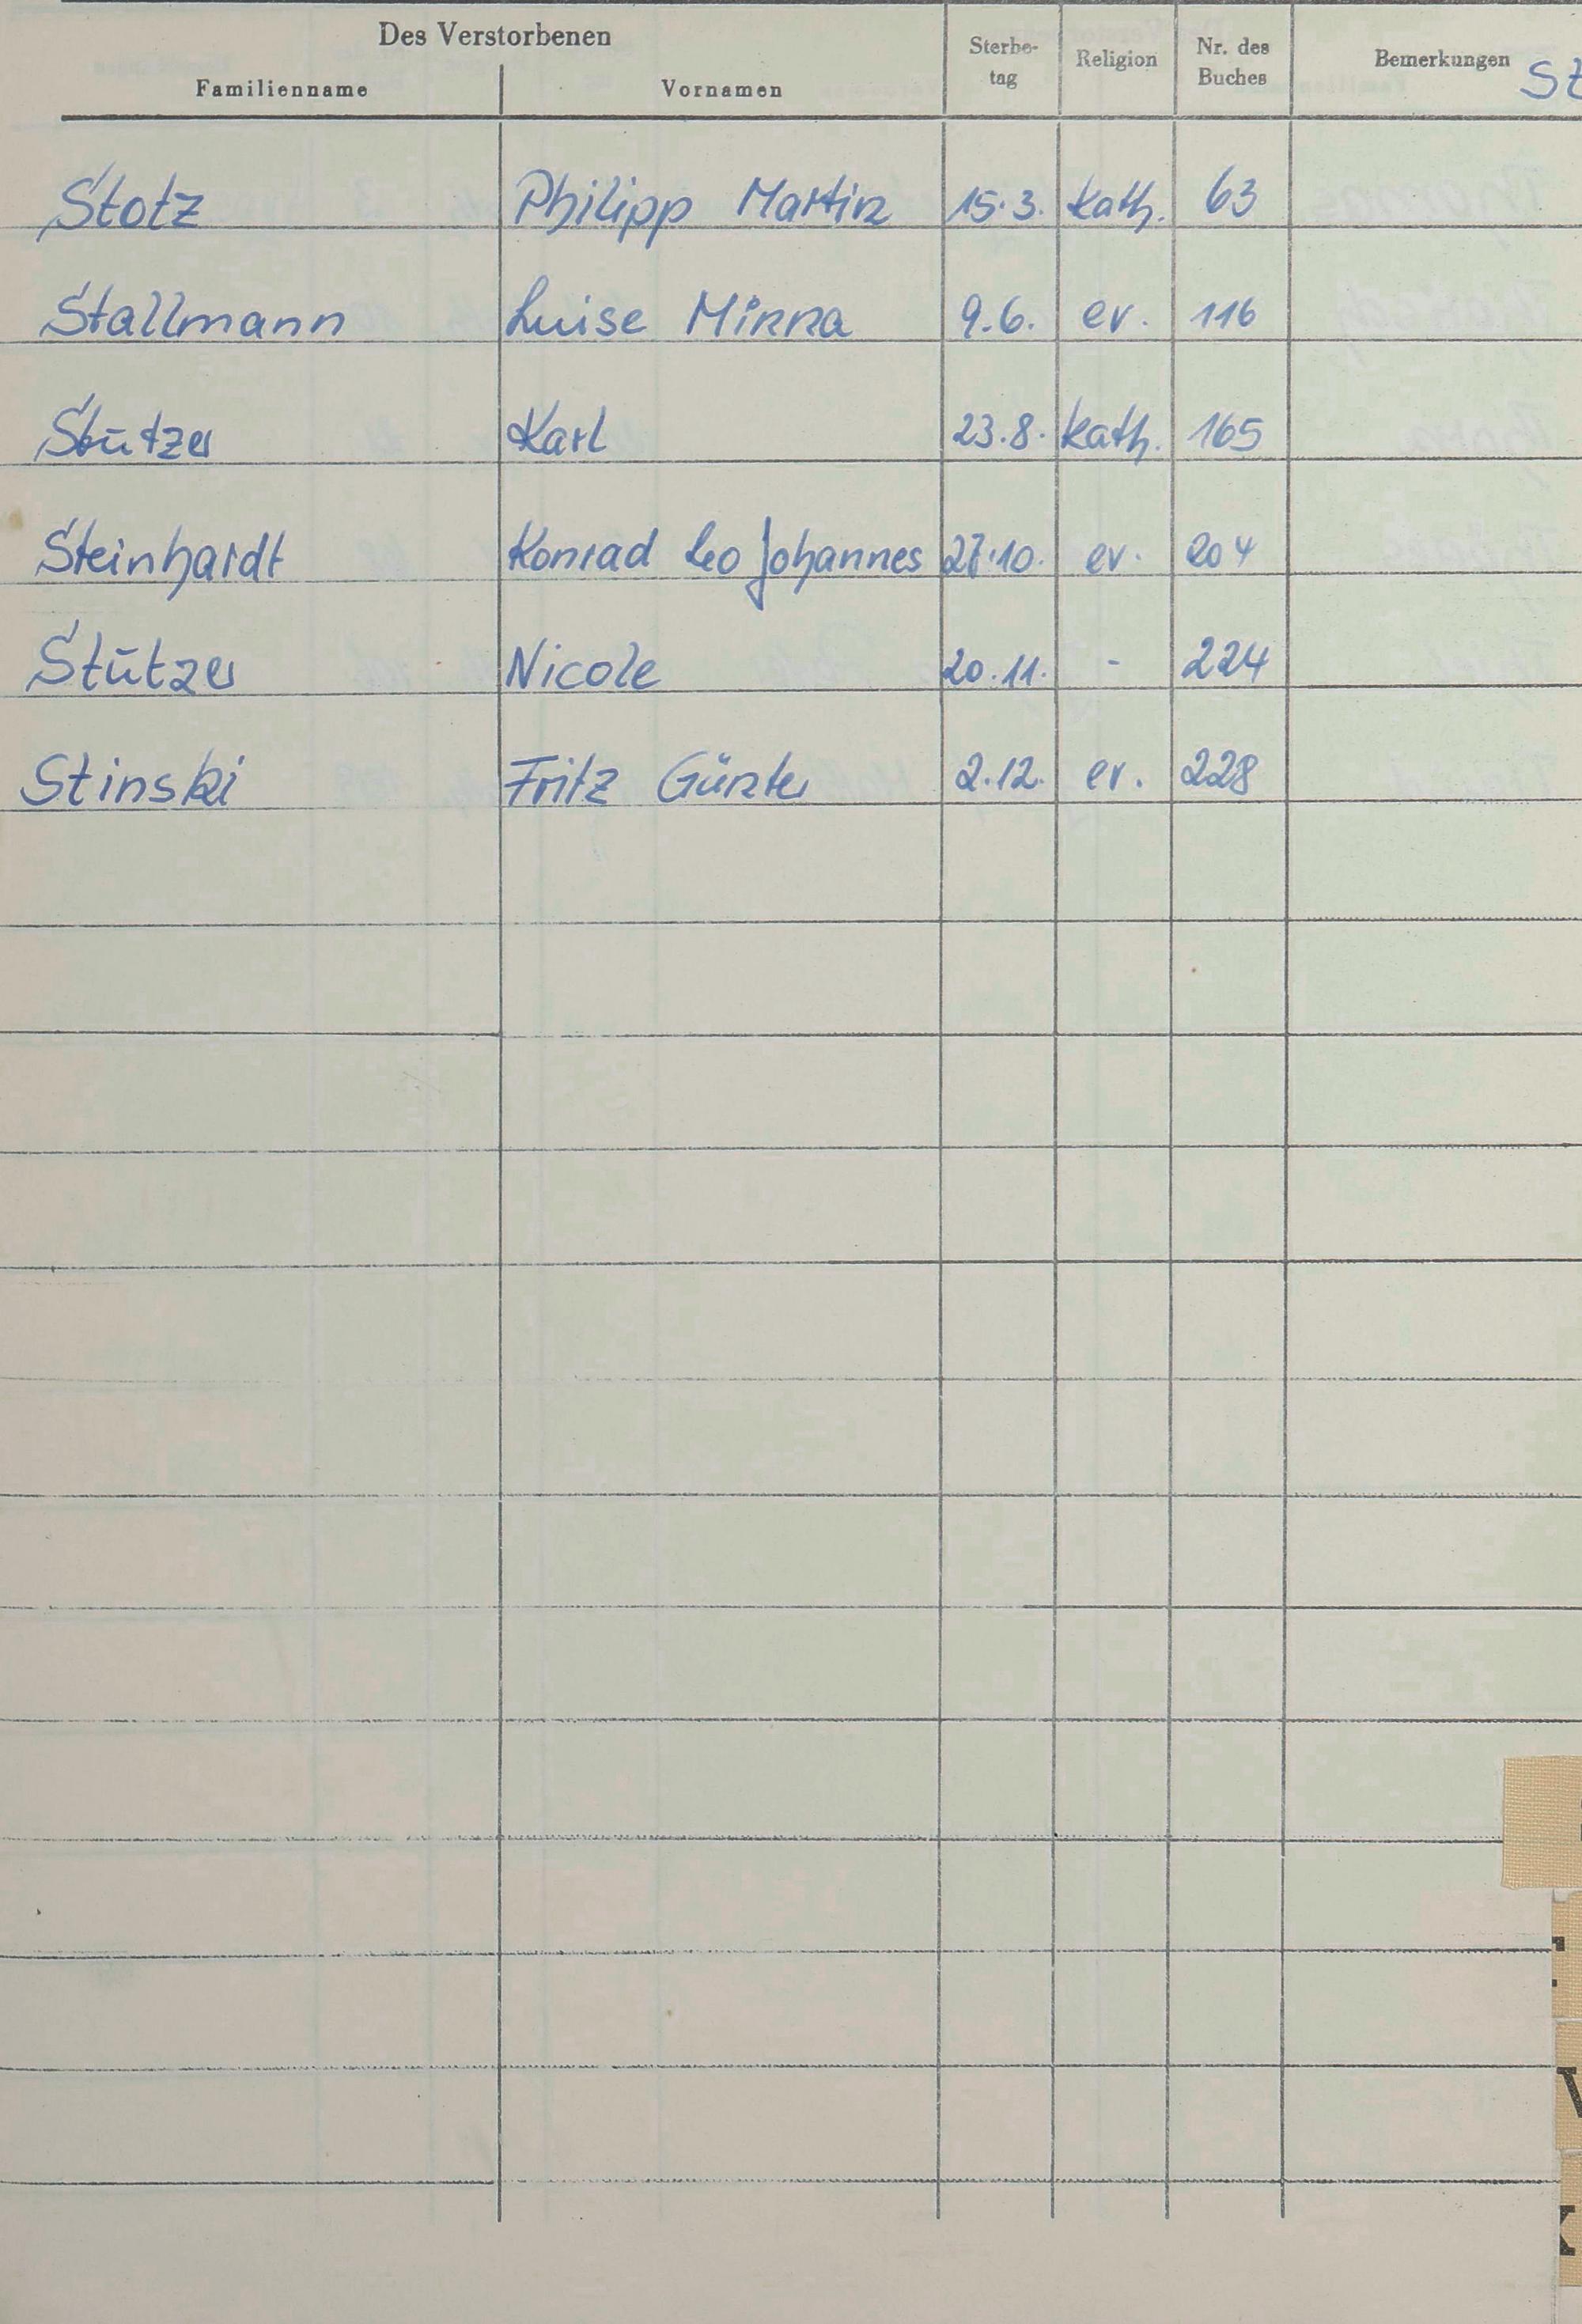 Des Verstorbenen
Familienname Vornamen Sterbe-tag Religion Nr. des Buches Bemerkungen St
Stotz Philipp Martin 15.3. kath. 63
Stallmann Luise Minna 9.6. ev. 116
Stützer Karl 23.8. kath. 165
Steinhardt Konrad Leo Johannes 27.10. ev. 204
Stützer Nicole 20.11. - 224
Stinski Fritz Günter 2.12. ev. 228